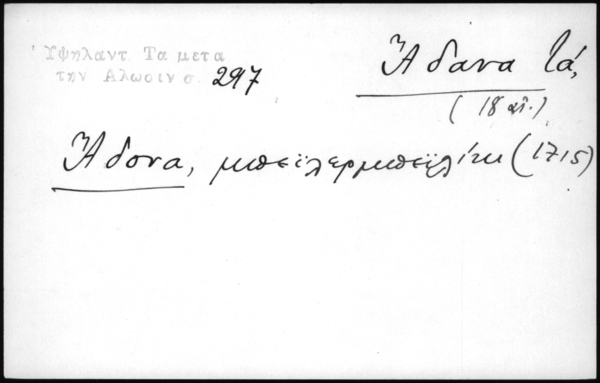 Ὑψηλαντ. Τα μετα
την Αλωσιν σ. 297
Ἄδανα τά,
(18 αἰ.)
Ἄδονα, μπεϊλερμπεϊλίκι (1715)